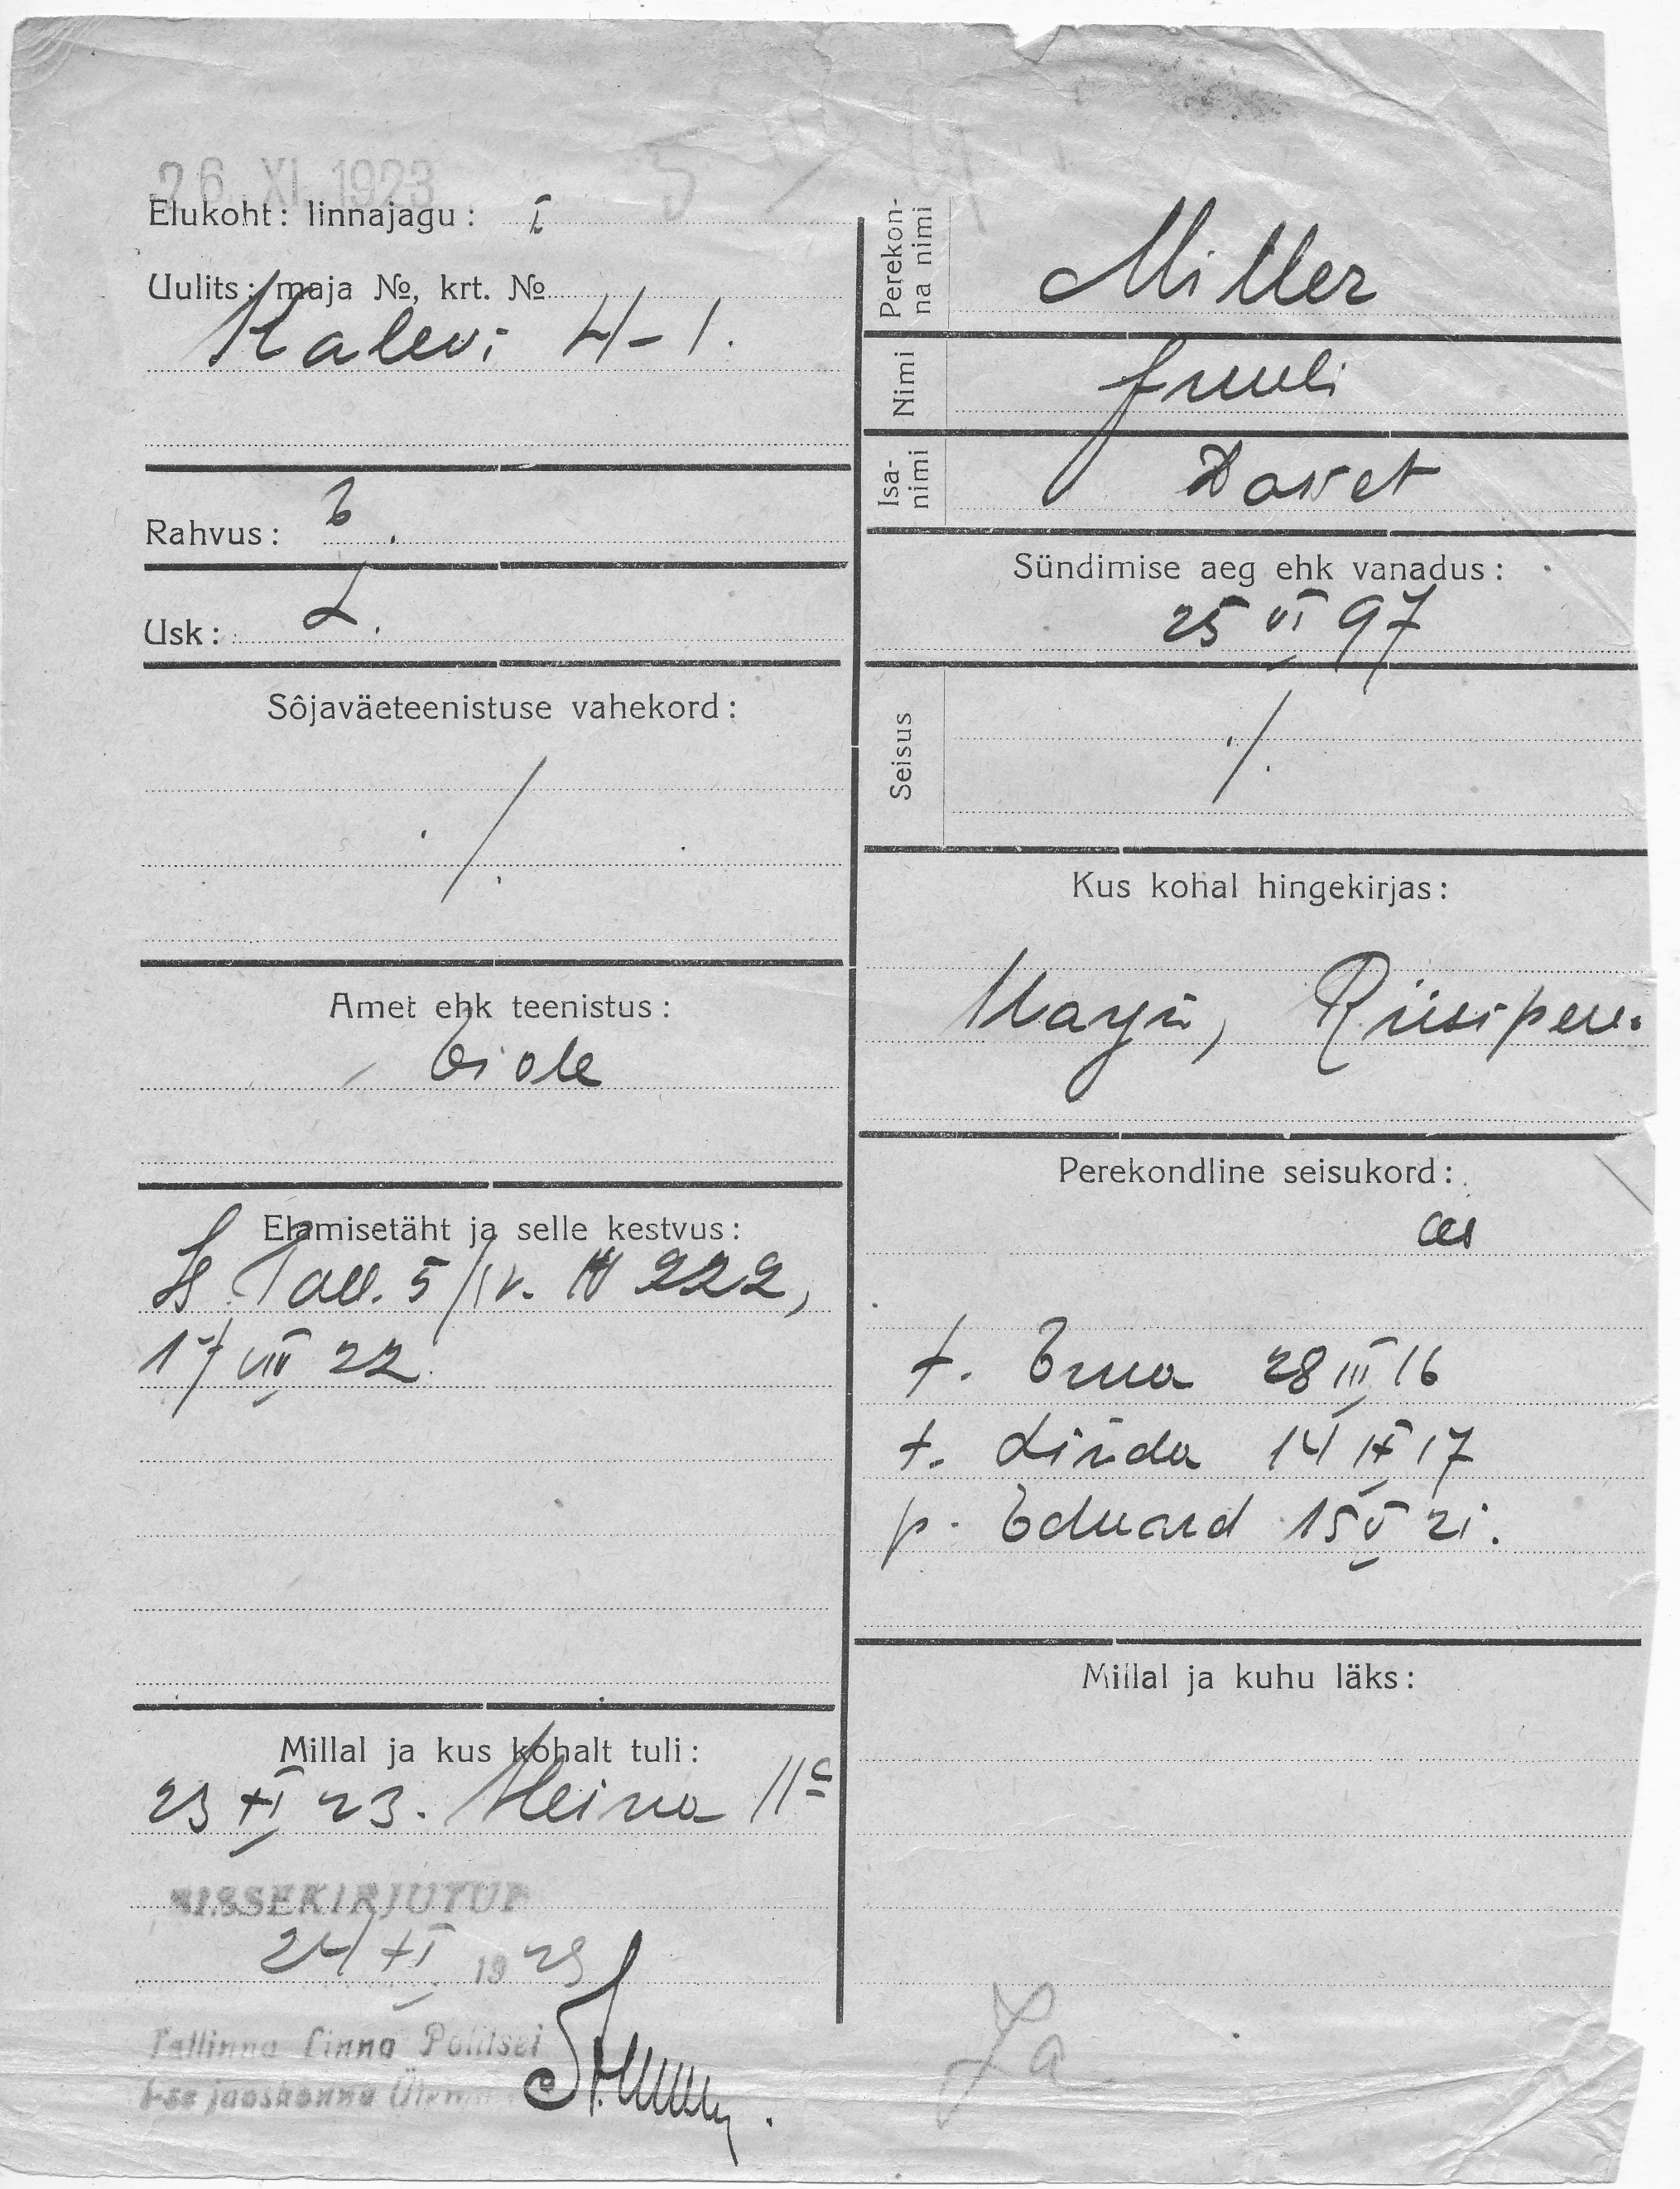 26. XI. 1923
5
Elukoht: linnajagu: I
Uulits, maja №, krt. №
Kalevi 4-1.
Rahvus: E.
Usk: L.
Sôjaväeteenistuse vahekord:
./.
Amet ehk teenistus:
Ei ole
Elamisetäht ja selle kestvus:
Tall. 5/IV. № 222,
17 VIII 22
Millal ja kus kohalt tuli:
23 XI 23. Heina 11c
SISSEKIRJUTUD
24 XI 1923
Tallinna Linna Politsei
I-se jaoskonna Ülem
Perekon-
na nimi
Miller
Nimi
Juuli
Isa-
nimi
Davet
Sündimise aeg ehk vanadus:
25 VI 97
Seisus
./.
Kus kohal hingekirjas:
Harju, Riisipere.
Perekondline seisukord:
t. Erna 28 III 16
t. Linda 14 IX 17
p. Eduard 15 V 21.
Millal ja kuhu läks: